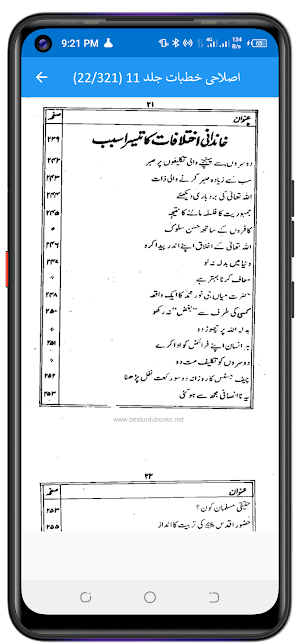 9:21 PM
4G 4G 134 B/s 60
اصلاحی خطبات جلد 11 (22/321)
۲۱
عنوان صفحہ
خاندانی اختلافات کا تیسرا سبب ۲۳۹
دوسروں سے پہنچنے والی تکلیفوں پر صبر ۲۴۲
سب سے زیادہ صبر کرنے والی ذات ۲۴۳
اللہ تعالیٰ کی بردباری دیکھئے ۲۴۴
جمہوریت کا فلسفہ ماننے کا نتیجہ ۲۴۵
کافروں کے ساتھ حسن سلوک ״
اللہ تعالیٰ کے اخلاق اپنے اندر پیدا کرو ۲۴۶
دنیا میں بدلہ نہ لو ״
معاف کرنا بہتر ہے ״
حضرت میاں جی نور محمد کا ایک واقعہ ۲۴۸
کسی کی طرف سے "بغض" نہ رکھو ۲۵۰
بدلہ اللہ پر چھوڑ دو ״
ہر انسان اپنے فرائض کو ادا کرے ۲۵۱
دوسروں کو تکلیف مت دو ״
چیف جسٹس کا روزانہ دو سو رکعت نفل پڑھنا ۲۵۲
یہ ناانصافی مجھ سے ہو گئی ۲۵۳
www.besturdubooks.net
۲۲
عنوان صفحہ
حقیقی مسلمان کون؟ ۲۵۳
حضور اقدس ﷺ کی تربیت کا انداز ۲۵۵